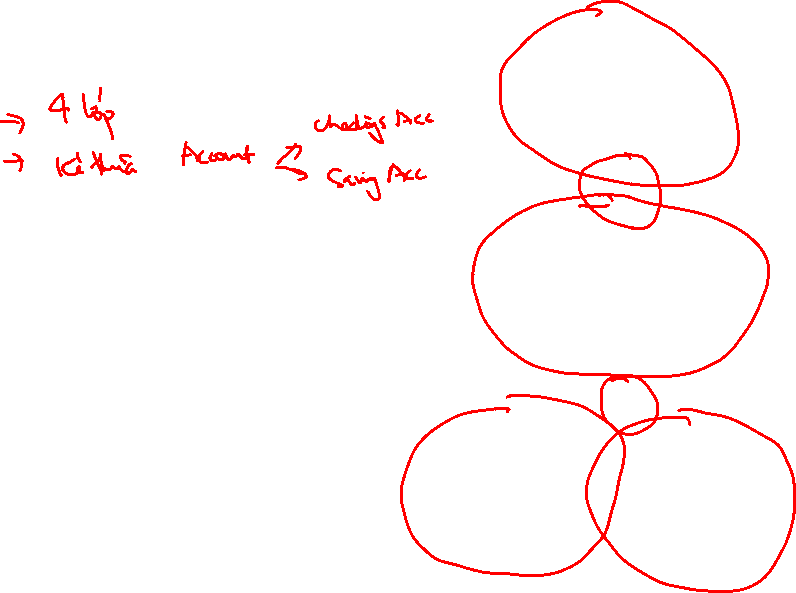 → 4 lớp
→ Kế thừa Account
Checkings Acc
Saving Acc